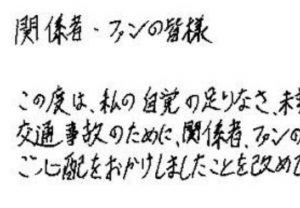 関係者・ファンの皆様
この度は、私の自覚の足りなさ、未
交通事故のために、関係者、ファンの
ご心配をおかけしましたことを改め